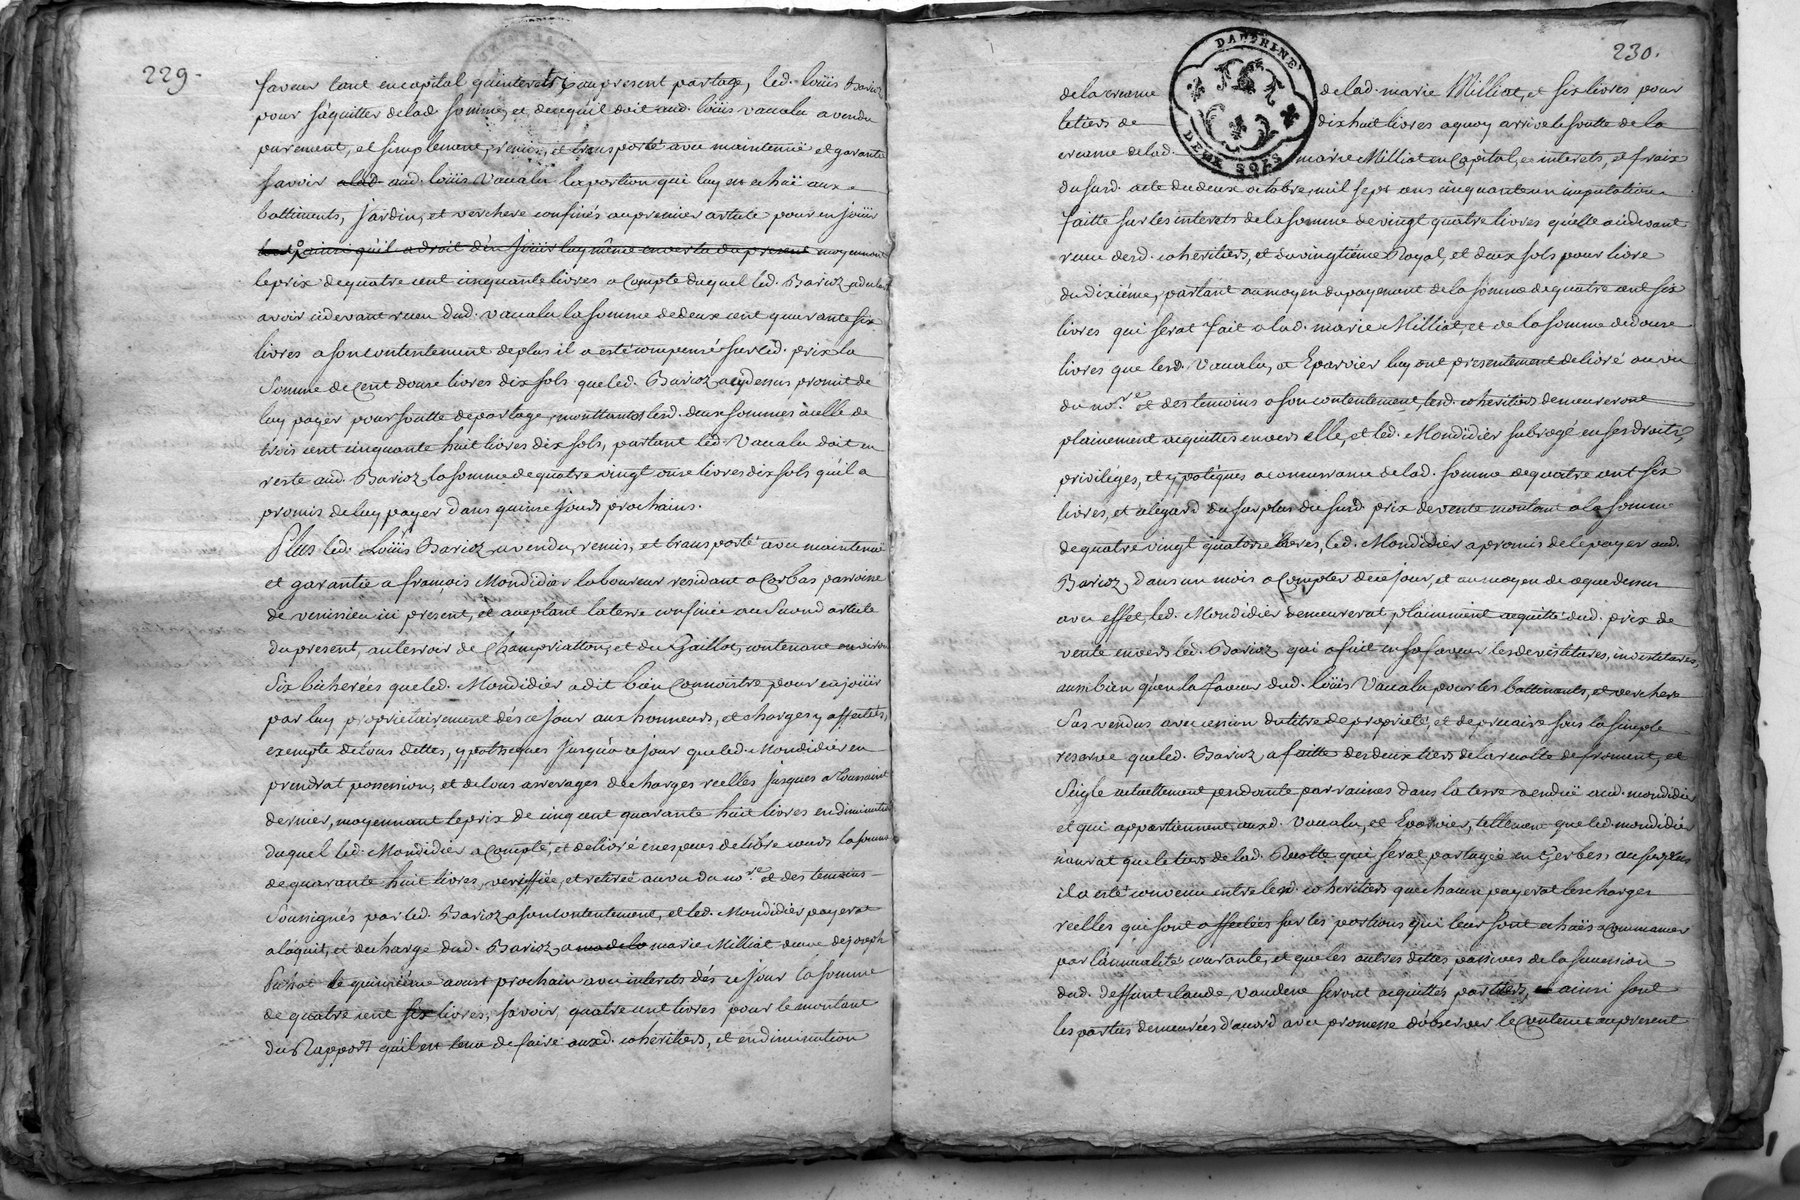 229.
faveur tant en capital qu'interets qu'au present partage, led. Loüis Barioz
pour s'aquitter de lad somme, et de ce qu'il doit aud. Loüis Vacalu a vendu
purement, et simplement, remis, et transporté avec maintenüe et garantie
savoir alad. aud. Loüis Vacalu la portion qui luy est echuë aux
battiments, jardin, et verchere confinés au premier article pour en joüir
qu'il a droit d'en joüir luy même en vertu du present moyennant
le prix de quatre cent cinquante livres a compte duquel led. Barioz a declaré
avoir cidevant receu dud. Vacalu la somme de deux cent quarante six
livres a son contentement de plus il a esté compensé sur led. prix la
somme de cent douse livres dix sols que led. Barioz a cy dessus promit de
luy payer pour soutte de partage, montants lesd. deux sommes a celle de
trois cent cinquante huit livres dix sols, partant led. Vacalu doit en
reste aud. Barioz la somme de quatre vingt onse livres dix sols qu'il a
promis de luy payer dans quinse jours prochains.
Plus led. Loüis Barioz a vendu, remis, et transporté avec maintenüe
et garantie a françois Mondidier laboureur residant a Corbas parroisse
de venissieu ici present, et aceptant la terre confinée au second article
du present, au terroir de Champriatton, et du Gaillot, contenant environ
six bicherées que led. Mondidier a dit bien connoitre pour en joüir
par luy proprietairement dés ce jour aux honneurs, et charges y affectées,
exempte de tous dettes, ypotheques jusqu'a ce jour que led. Mondidier en
prendrat possession, et de tous arrerages de charges reelles jusques a Toussaint
dernier, moyennant le prix de cinq cent quarante huit livres en diminution
duquel led. Mondidier a compté, et delivré en especes de libre cours la somme
de quarante huit livres, veriffiée, et retirée au vu du no.re et des temoins
soussignés par led. Barioz a son contentement, et led. Mondidier payerat
a l'aquit, et decharge dud. Barioz a marie Milliat veuve de joseph
Pichat le quinzième aoust prochain avec interets dés ce jour la somme
de quatre cent six livres, savoir, quatre cent livres pour le montant
du Rapport qu'il est tenu de faire auxd. coheritiers, et en diminution
230.
DAUPHINE
DEUX SOLS
de la creance de lad. marie Milliat, et six livres pour
le tiers de dix huit livres a quoy arrive le soutte de la
creance de lad. marie Milliat en capital, et interets, et fraix
du susd. acte du deux octobre, mil sept cens cinquante un imputation
faitte sur les interets de la somme de vingt quatre livres qu'elle a cidevant
receu desd. coheritiers, et du vingtième Royal, et deux sols pour livre
du dixiéme, partant au moyen du payement de la somme de quatre cent six
livres qui serat fait a lad. marie Milliat, et de la somme de douse
livres que lesd. Vacalu, et Eparvier luy ont presentement delivré au vu
du no.re et des temoins a son contentement, lesd. coheritiers demeureront
plainement acquittes envers elle, et led. Mondidier subrogé en ses droits,
priviléges, et ypotéques a concurrance de lad. somme de quatre cent six
livres, et a légard du surplus du susd. prix de vente montant a la somme
de quatre vingt quatorse livres, led. Mondidier a promis de le payer aud.
Barioz, dans un mois a compter de ce jour, et au moyen de ce que dessus
avec effet, led. Mondidier demeurerat plainement acquitté dud. prix de
vente envers led. Barioz qui a fait en sa faveur les devestitures, investitures,
aussi bien qu'en la faveur dud. Loüis Vacalu pour les battiments, et verchere
sus vendus avec cession du titre de proprieté, et de precaire sous la simple
reserve que led. Barioz a faitte des deux tiers de la recolte de froment, et
seigle actuellement pendante par racines dans la terre vendüe aud. mondidier
et qui appartiennent auxd. Vacalu, et Eparvier, tellement que led. mondidier
n'aurat que le tiers de lad. Recolte qui serat partagée en Gerbes, au surplus
il a eté convenu entre lesd. coheritiers que chacun payerat les charges
reelles qui sont affectées sur les portions qui leur sont echuës a commancer
par l'annualité courante, et que les autres dettes passives de la succession
dud. deffunt claude Vaudene seront acquittés par tiers, ainsi sont
les parties demeurées d'acord avec promesse d'observer le contenu au present